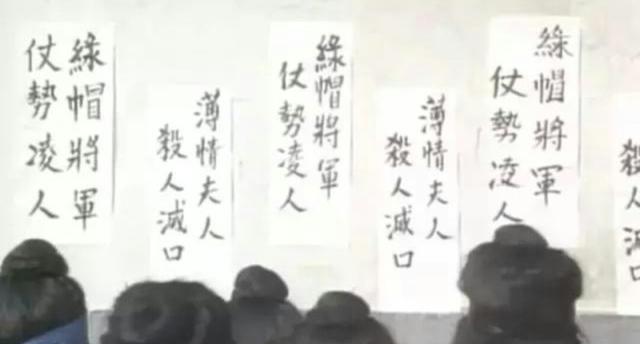 殺人滅口
綠帽將軍
仗勢凌人
薄情夫人
殺人滅口
綠帽將軍
仗勢凌人
薄情夫人
殺人滅口
綠帽將軍
仗勢凌人